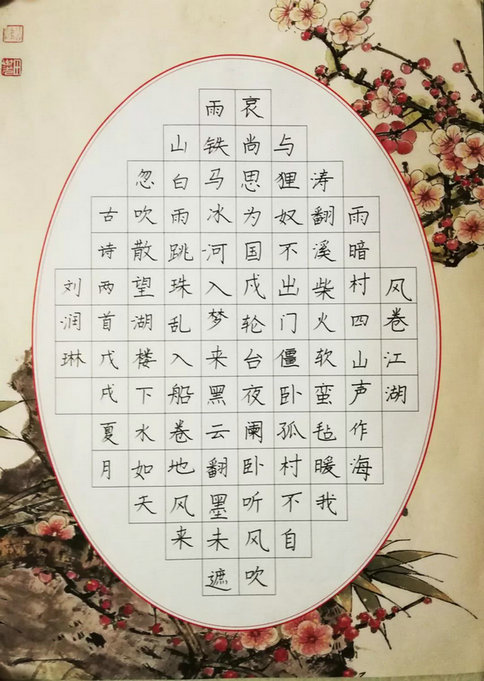 风卷江湖
雨暗村四山声作海
涛翻溪柴火软蛮毡暖我
与狸奴不出门僵卧孤村不自
哀尚思为国戍轮台夜阑卧听风吹
雨铁马冰河入梦来黑云翻墨未遮
山白雨跳珠乱入船卷地风来
忽吹散望湖楼下水如天
古诗两首戊戌夏月
刘润琳